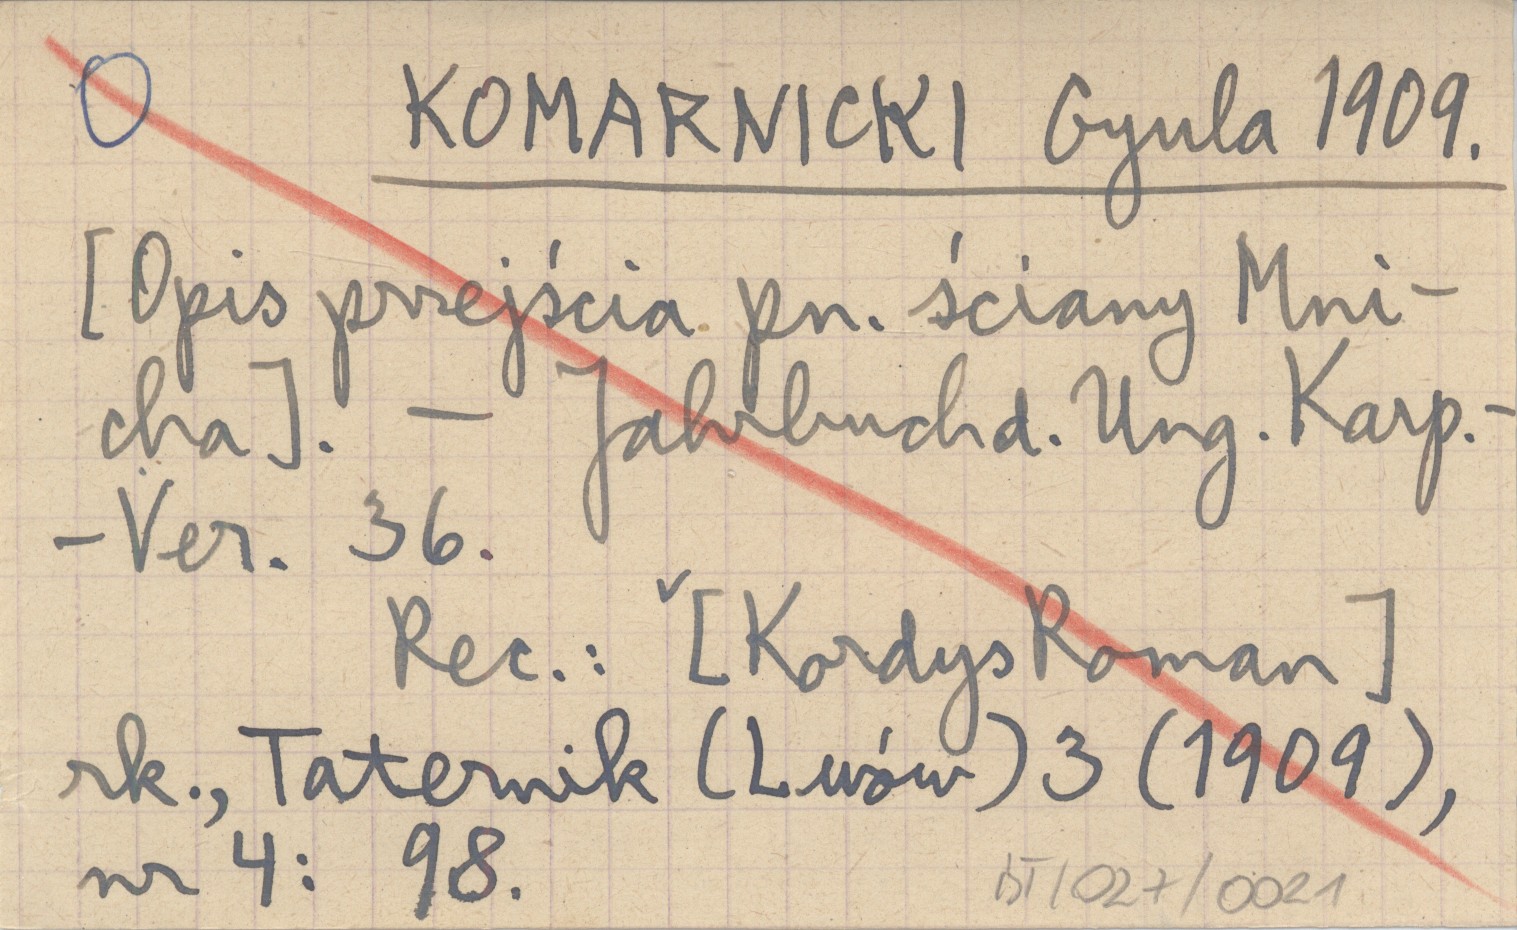 O KOMARNICKI Gyula 1909.
[Opis przejścia pn. ściany Mni-
cha]. — Jahrbuch d. Ung. Karp.-
-Ver. 36.
Rec.: ˅[Kordys Roman]
rk., Taternik (Lwów) 3 (1909),
nr 4: 98.
BT/027/0021